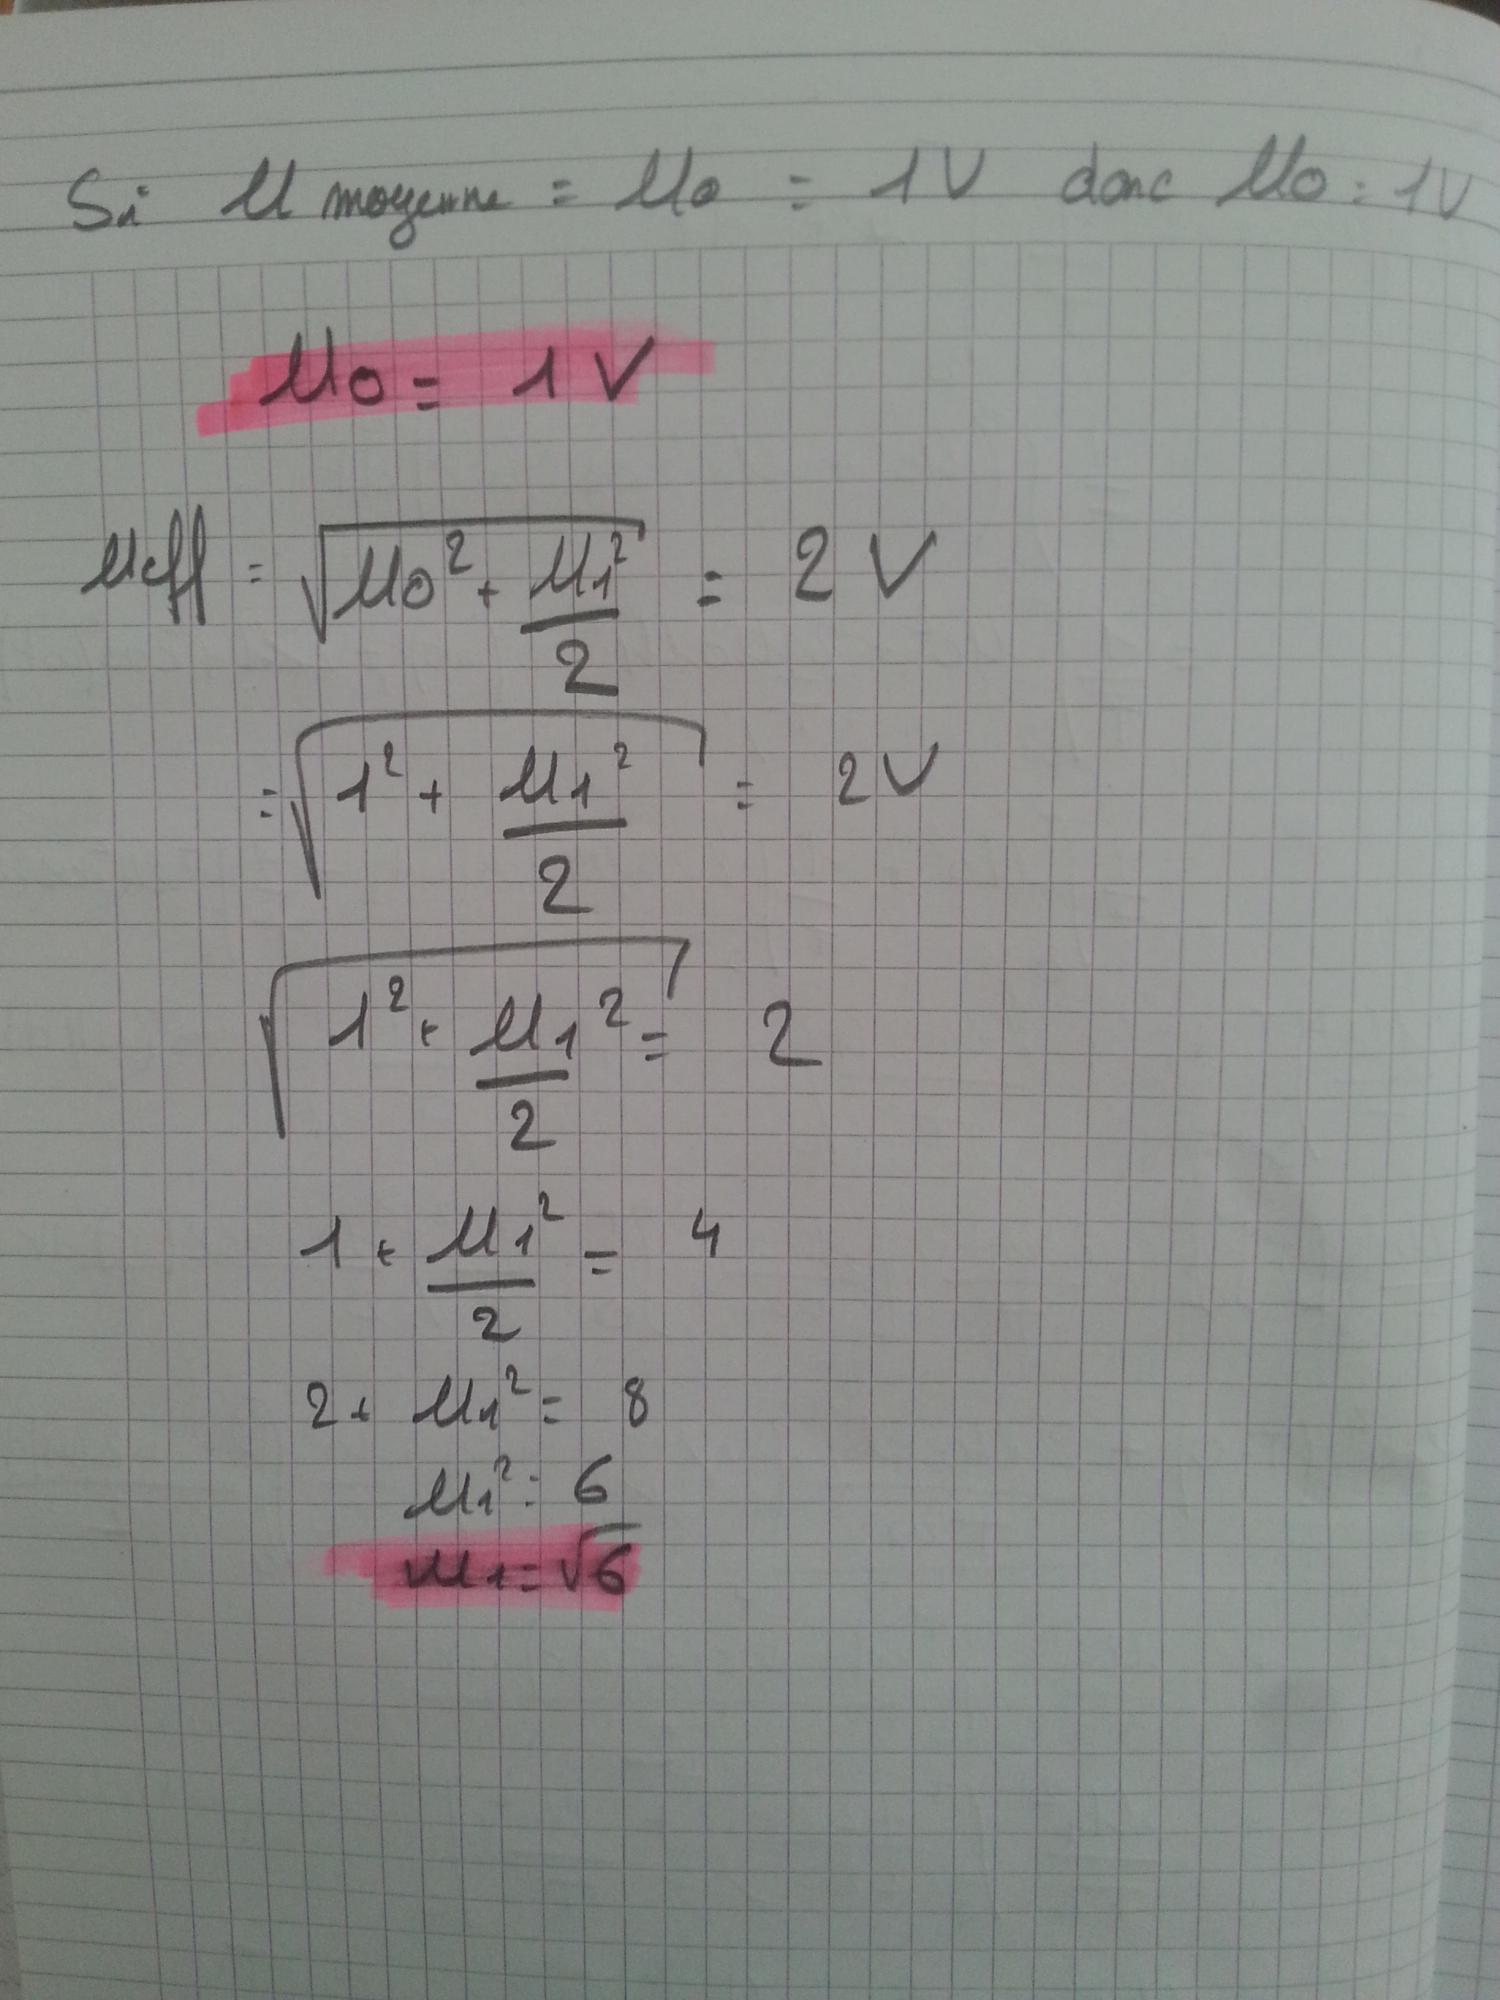 Si U moyenne = U0 = 1V donc U0 = 1V
U0 = 1V
Ueff = √(U0² + U1²/2) = 2V
= √(1² + U1²/2) = 2V
√(1² + U1²/2) = 2
1 + U1²/2 = 4
2 + U1² = 8
U1² = 6
U1 = √6